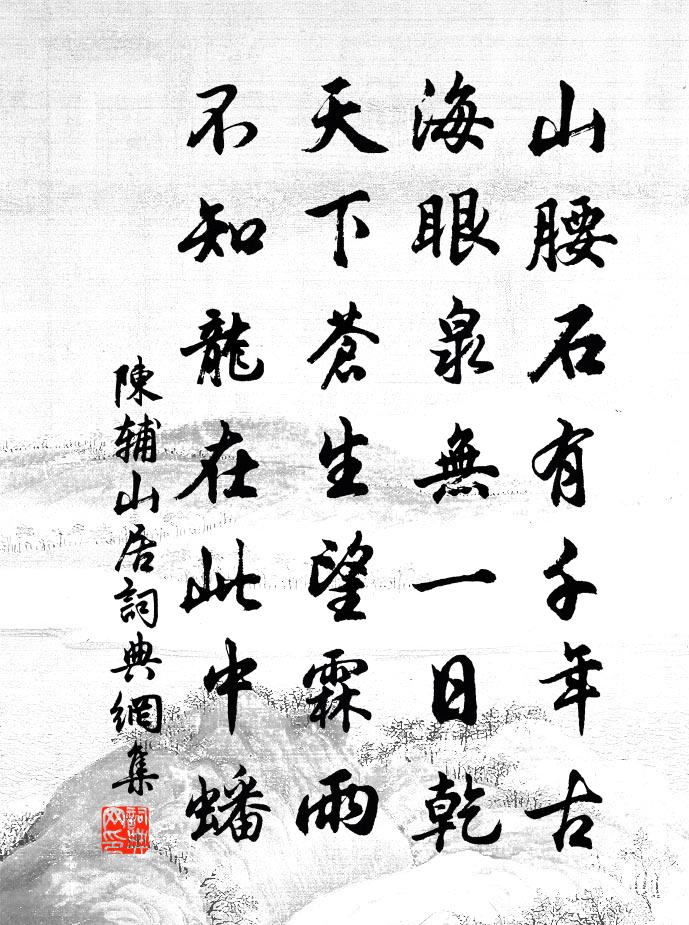 山腰石有千年古
海眼泉無一日乾
天下蒼生望霖雨
不知龍在此中蟠
陳輔山居詞典網集